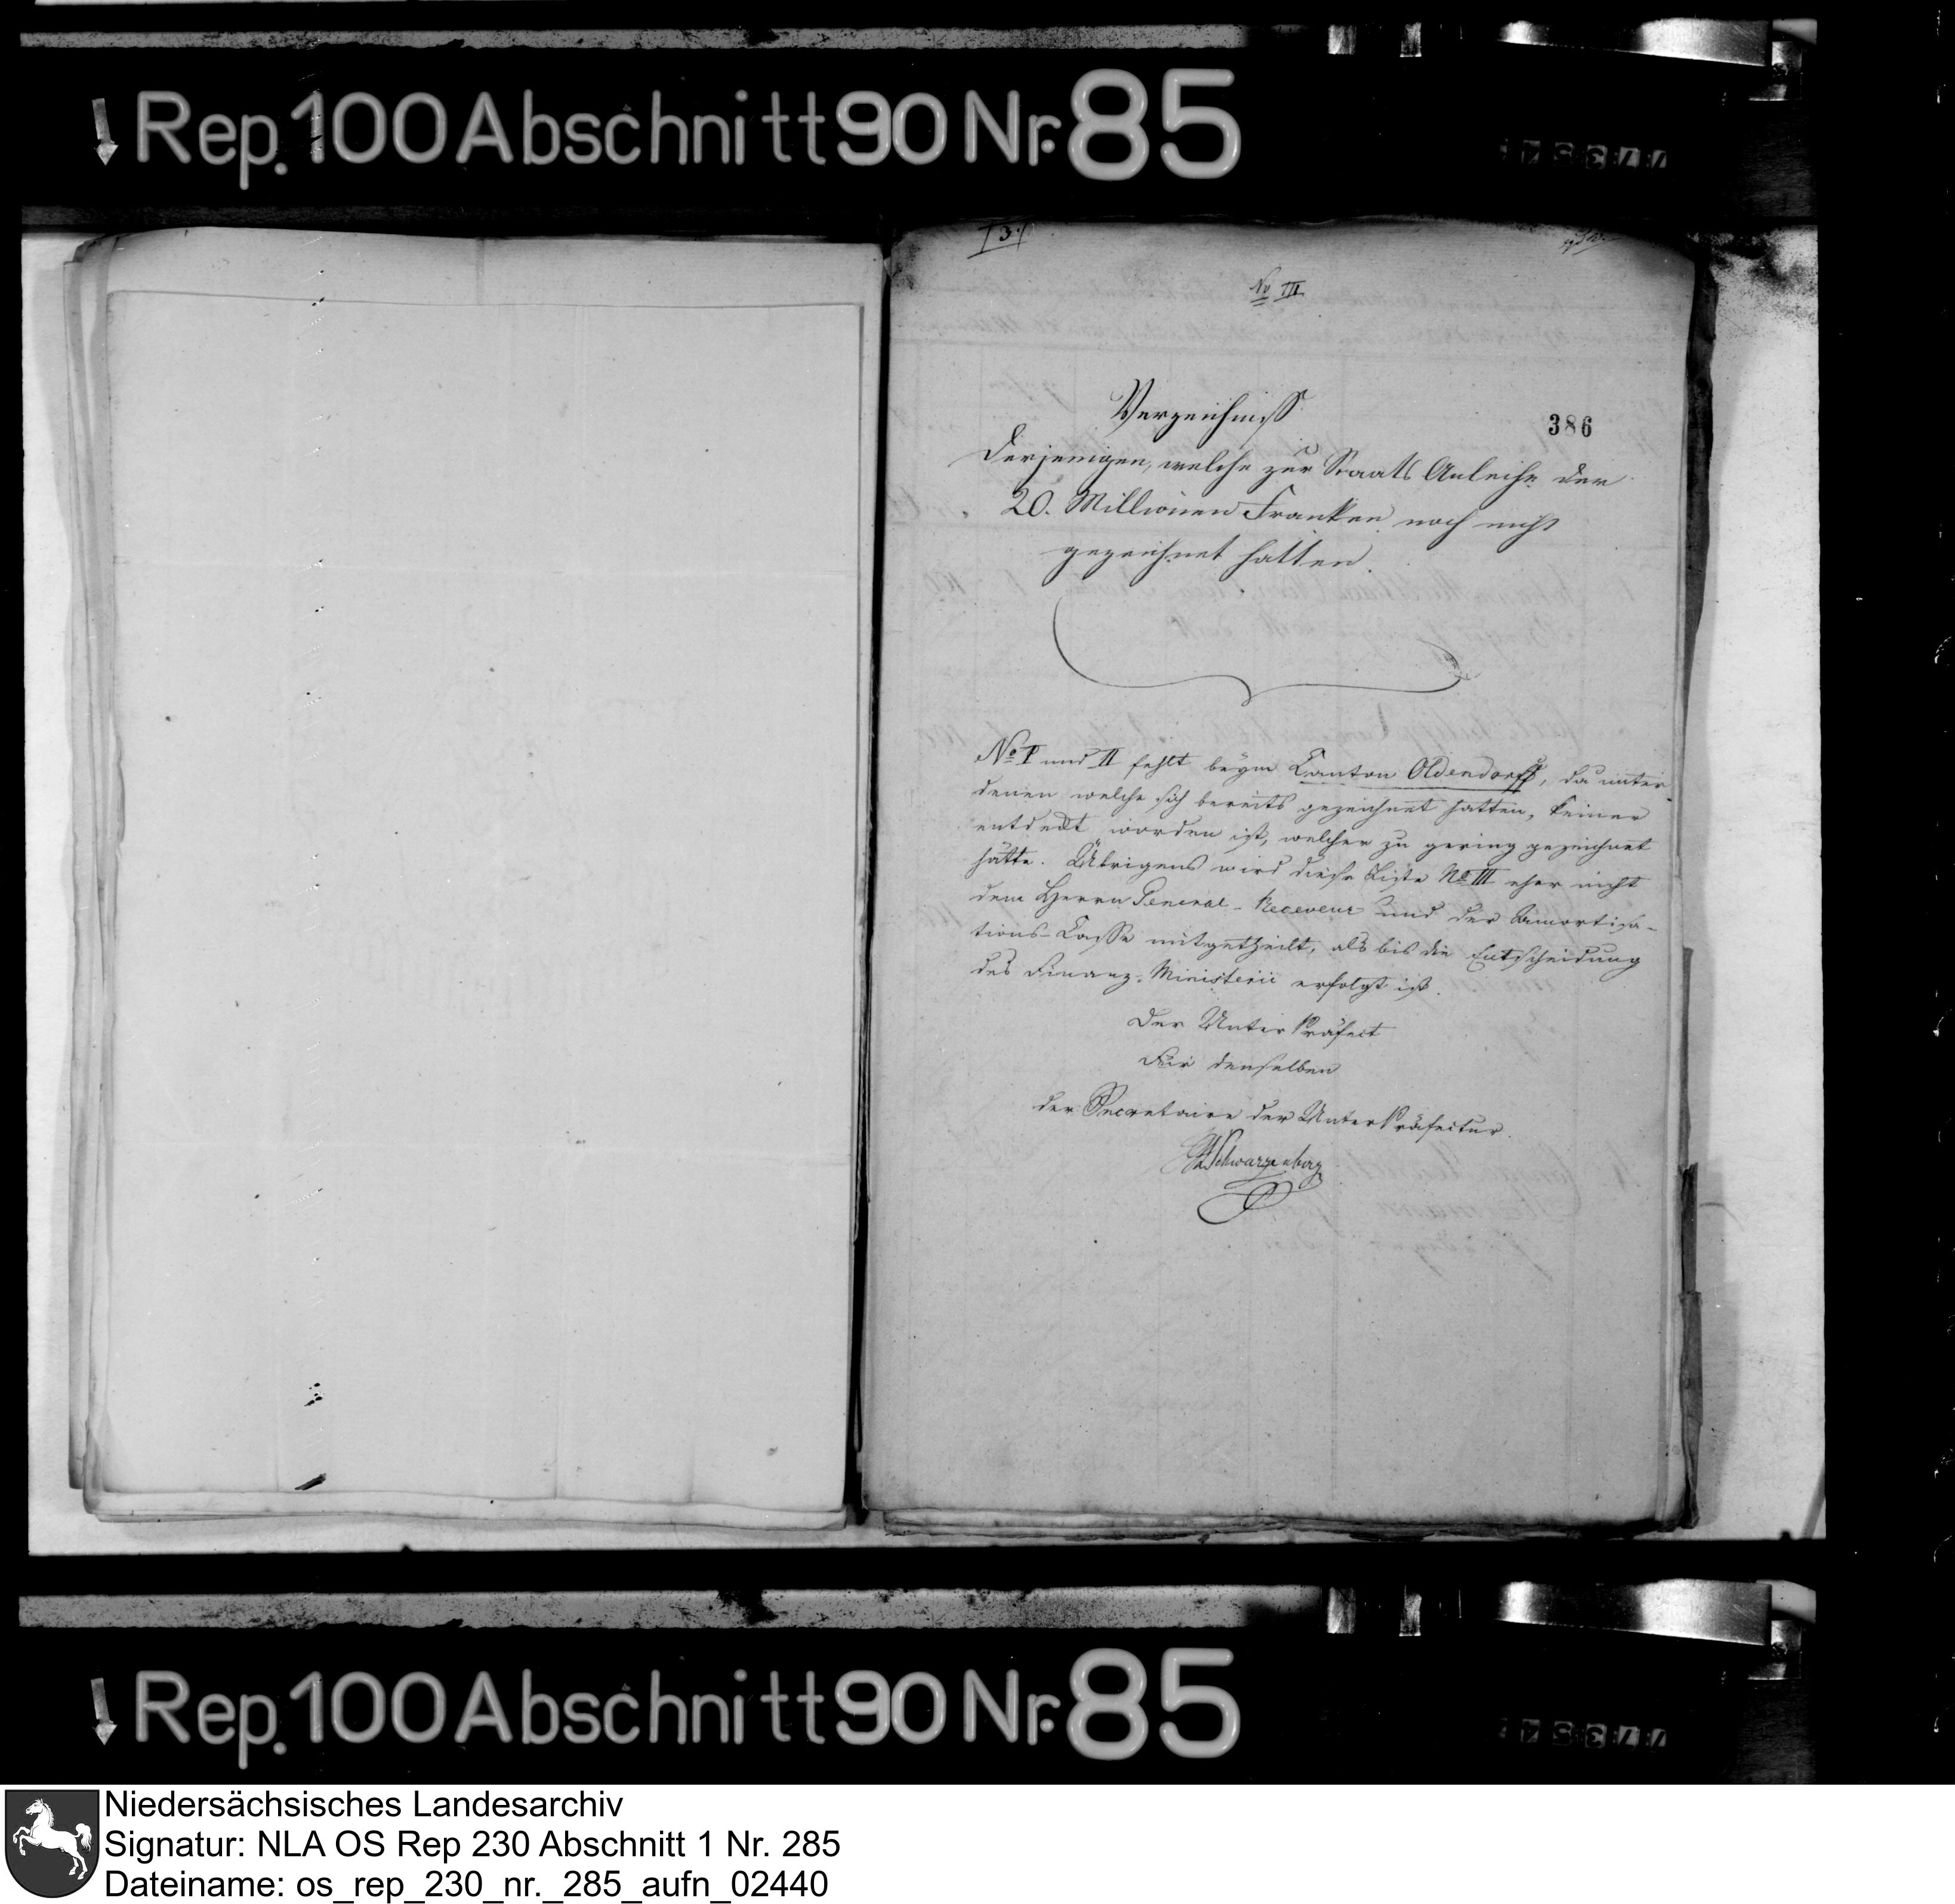 Rep. 100 Abschnitt 90 Nr. 85
I 3.
No III
Verzeichniss
386
derjenigen, welche zur Staats Anleihe der
20. Millionen Franken noch nicht
gezeichnet hatten.
No I und II fehlt beym Canton Oldendorff, da unter
denen welche sich bereits gezeichnet hatten, keiner
entdeckt worden ist, welcher zu gering gezeichnet
hätte. Übrigens wird diese Liste No III eher nicht
dem Herrn General-Receveur und der Amortisa-
tions-Casse mitgetheilt, als bis die Entscheidung
des Finanz-Ministerii erfolgt ist.
Der Unter Präfect
Für denselben
der Secretaire der Unter Präfectur.
Schwarzenberg
Rep. 100 Abschnitt 90 Nr. 85
Niedersächsisches Landesarchiv
Signatur: NLA OS Rep 230 Abschnitt 1 Nr. 285
Dateiname: os_rep_230_nr._285_aufn_02440